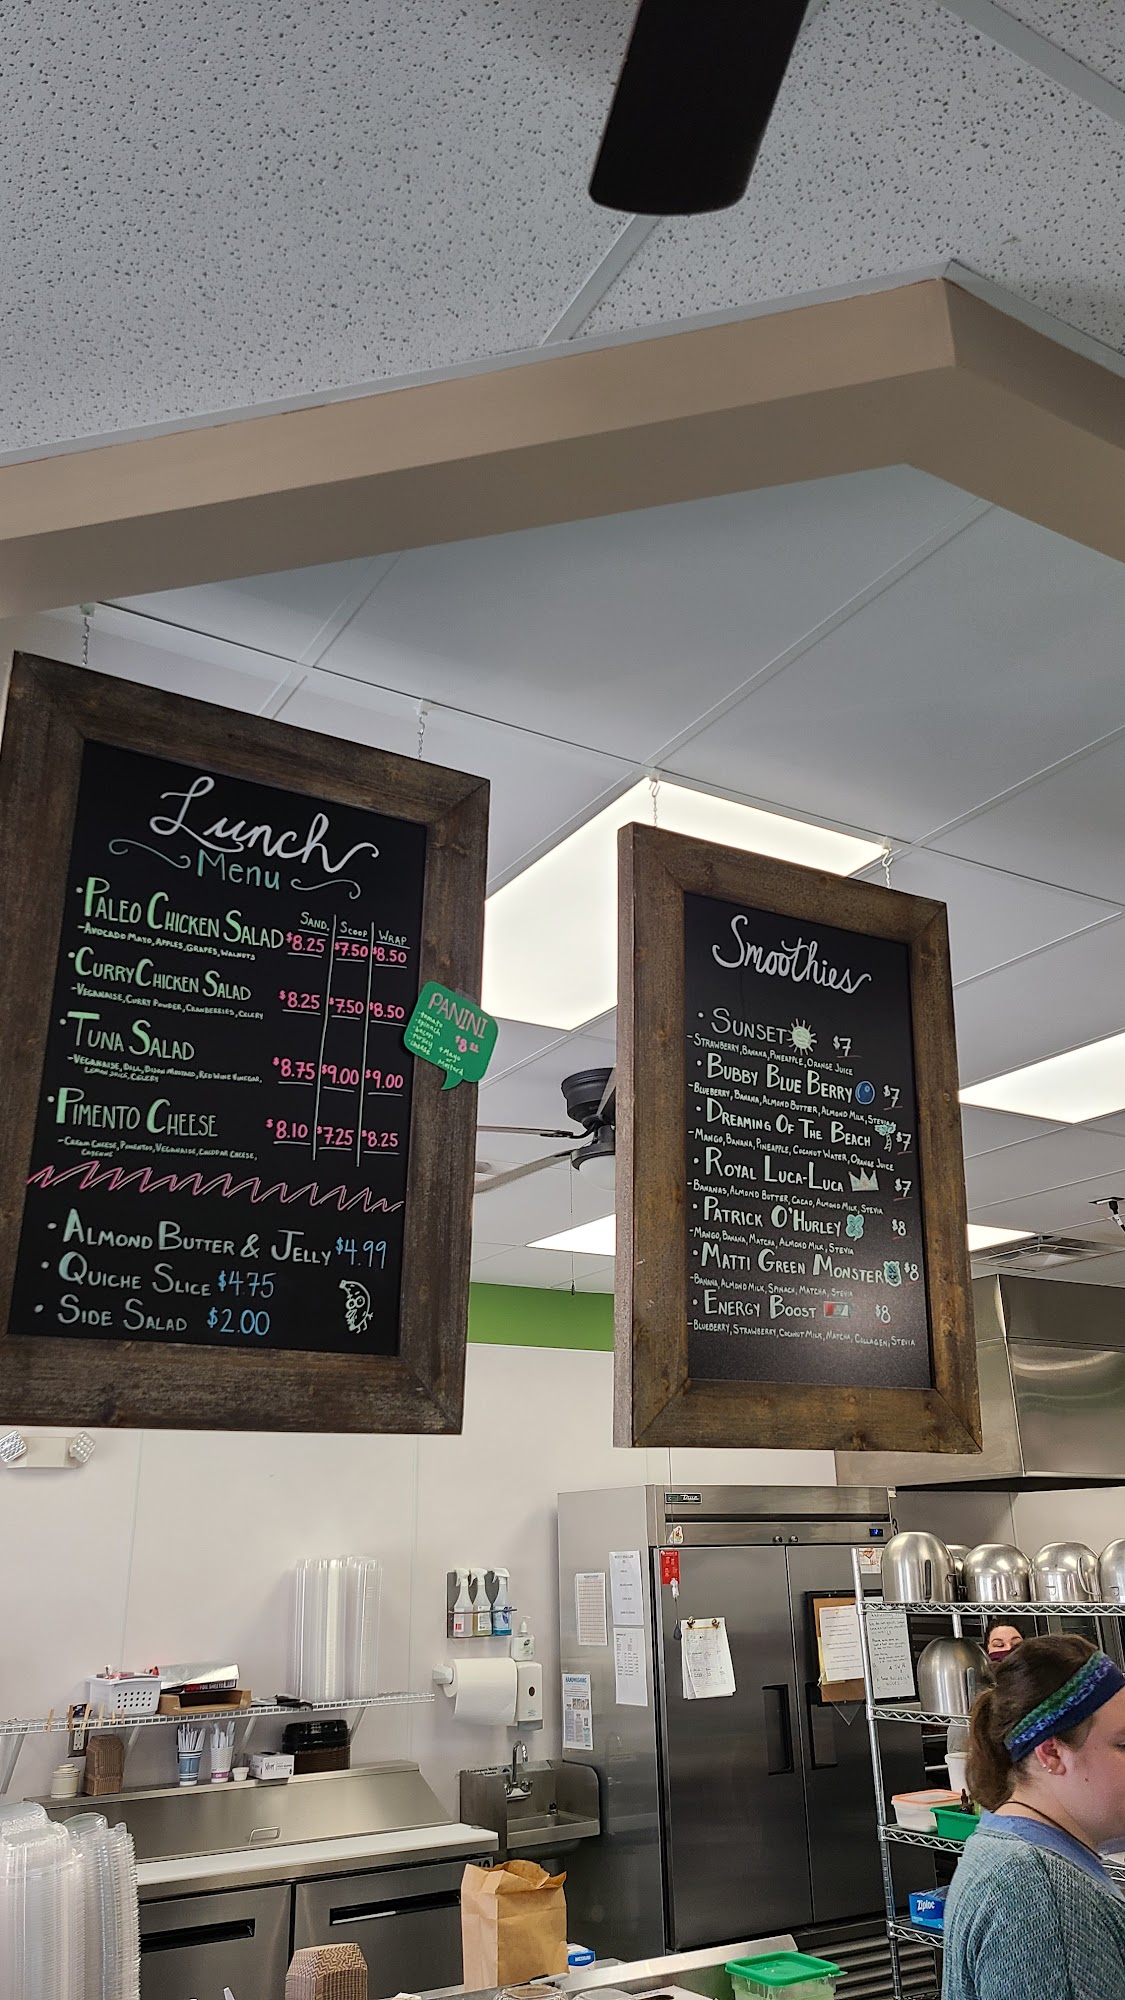 Lunch
Menu
SAND. SCOOP WRAP
• PALEO CHICKEN SALAD $8.25 $7.50 $8.50
- AVOCADO MAYO, APPLES, GRAPES, WALNUTS
• CURRY CHICKEN SALAD $8.25 $7.50 $8.50
- VEGANAISE, CURRY POWDER, CRANBERRIES, CELERY
• TUNA SALAD $8.75 $9.00 $9.00
- VEGANAISE, DILL, DIJON MUSTARD, RED WINE VINEGAR,
LEMON JUICE, CELERY
• PIMENTO CHEESE $8.10 $7.25 $8.25
- CREAM CHEESE, PIMENTOS, VEGANAISE, CHEDDAR CHEESE,
CAYENNE
• ALMOND BUTTER & JELLY $4.99
• QUICHE SLICE $4.75
• SIDE SALAD $2.00
PANINI
- tomato
- spinach
- bacon
- turkey
- cheese
+ Mayo
or
Mustard
Smoothies
• SUNSET $7
- STRAWBERRY, BANANA, PINEAPPLE, ORANGE JUICE
• BUBBY BLUE BERRY $7
- BLUEBERRY, BANANA, ALMOND BUTTER, ALMOND MILK, STEVIA
• DREAMING OF THE BEACH $7
- MANGO, BANANA, PINEAPPLE, COCONUT WATER, ORANGE JUICE
• ROYAL LUCA-LUCA $7
- BANANAS, ALMOND BUTTER, CACAO, ALMOND MILK, STEVIA
• PATRICK O'HURLEY $8
- MANGO, BANANA, MATCHA, ALMOND MILK, STEVIA
• MATTI GREEN MONSTER $8
- BANANA, ALMOND MILK, SPINACH, MATCHA, STEVIA
• ENERGY BOOST $8
- BLUEBERRY, STRAWBERRY, COCONUT MILK, MATCHA, COLLAGEN, STEVIA
True
Ziploc